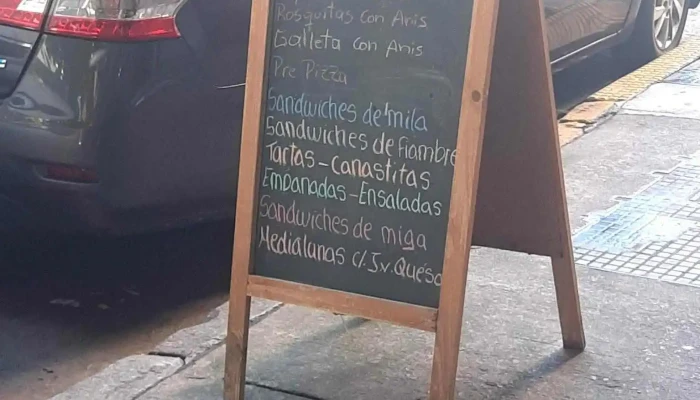 Rosquitas con Anis
Galleta con Anis
Pre Pizza
Sandwiches de mila
Sandwiches de fiambre
Tartas-Canastitas
Empanadas-Ensaladas
Sandwiches de miga
Medialunas c/. Jv. Queso